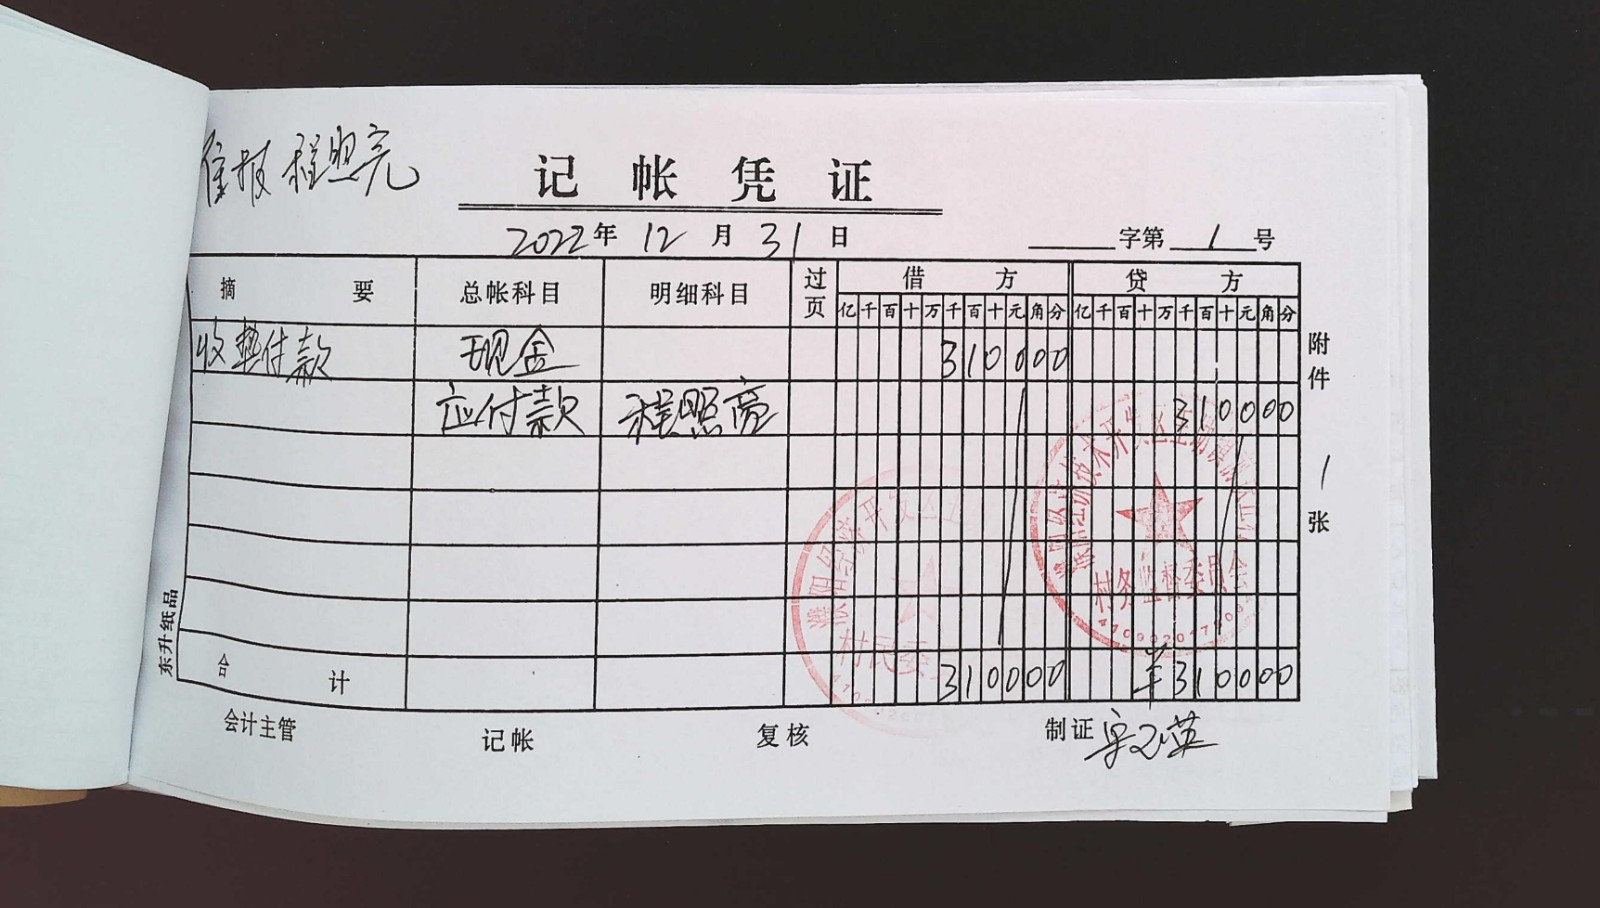 程照亮
记帐凭证
2022年 12月 31日
字第 1 号
摘要 总帐科目 明细科目 过页 借方 贷方
亿千百十万千百十元角分 亿千百十万千百十元角分
收垫付款 现金 310000
应付款 程照亮 310000
合计 310000 ¥310000
附件 1 张
会计主管 记帐 复核 制证
东升纸品
濮阳经济开发区
村民委
村务监督委员会